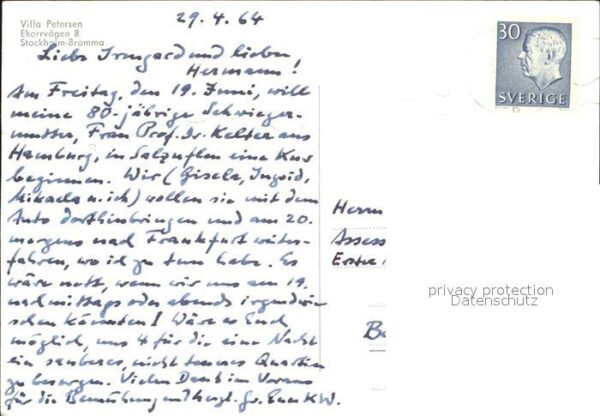 29.4.64
Villa Petersen
Ekorrvägen 8
Stockholm-Bromma
Liebe Irmgard und lieber
Hermann!
Am Freitag, den 19. Juni, will
meine 80-jährige Schwieger-
mutter, Frau Prof. Dr. Kelter aus
Hamburg, in Salzuflen eine Kur
beginnen. Wir (Gisela, Ingrid,
Mikaela u. ich) wollen sie mit dem
Auto dorthinbringen und am 20.
morgens nach Frankfurt weiter-
fahren, wo ich zu tun habe. Es
wäre nett, wenn wir uns am 19.
nachmittags oder abends irgendwie
sehen könnten! Wäre es Euch
möglich, uns 4 für die eine Nacht
ein sauberes, nicht teueres Quartier
zu besorgen. Vielen Dank im Voraus
für die Bemühung und herzl. Gr. Euer KW.
30
SVERIGE
Herrn
Assess
Erster
Ba
privacy protection
Datenschutz